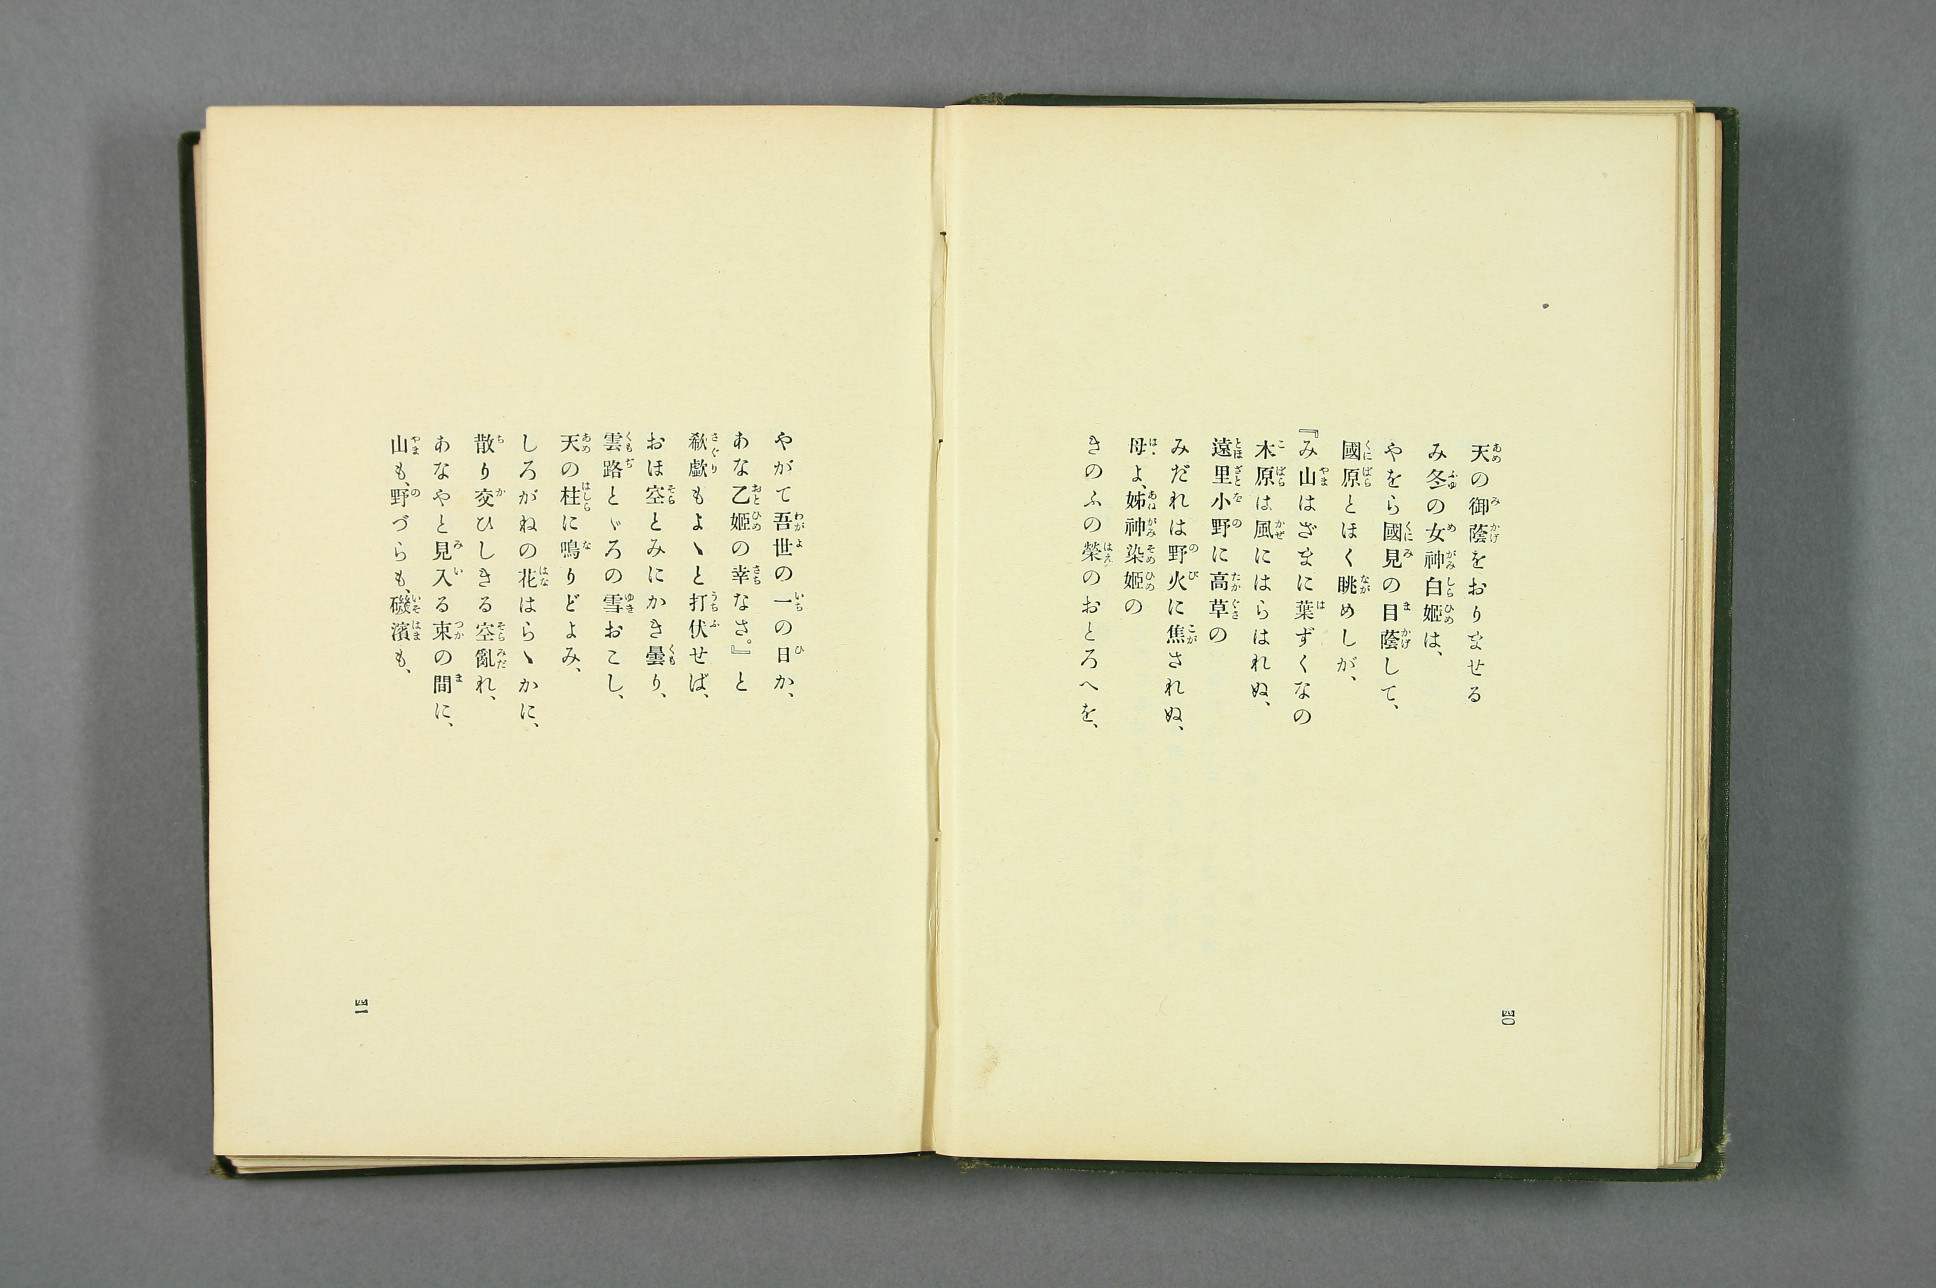 天の御蔭をおりませる
み冬の女神白姬は、
やをら國見の目蔭して、
國原とほく眺めしが、
『み山はざまに葉ずくなの
木原は風にはらはれぬ、
遠里小野に高草の
みだれは野火に焦されぬ、
母よ、姊神染姬の
きのふの榮のおとろへを、
四〇
やがて吾世の一の日か、
あな乙姬の幸なさ。』と
欷歔もよゝと打伏せば、
おほ空とみにかき曇り、
雲路とゞろの雪おこし、
天の柱に鳴りどよみ、
しろがねの花はらゝかに、
散り交ひしきる空亂れ、
あなやと見入る束の間に、
山も、野づらも、磯濱も、
四一